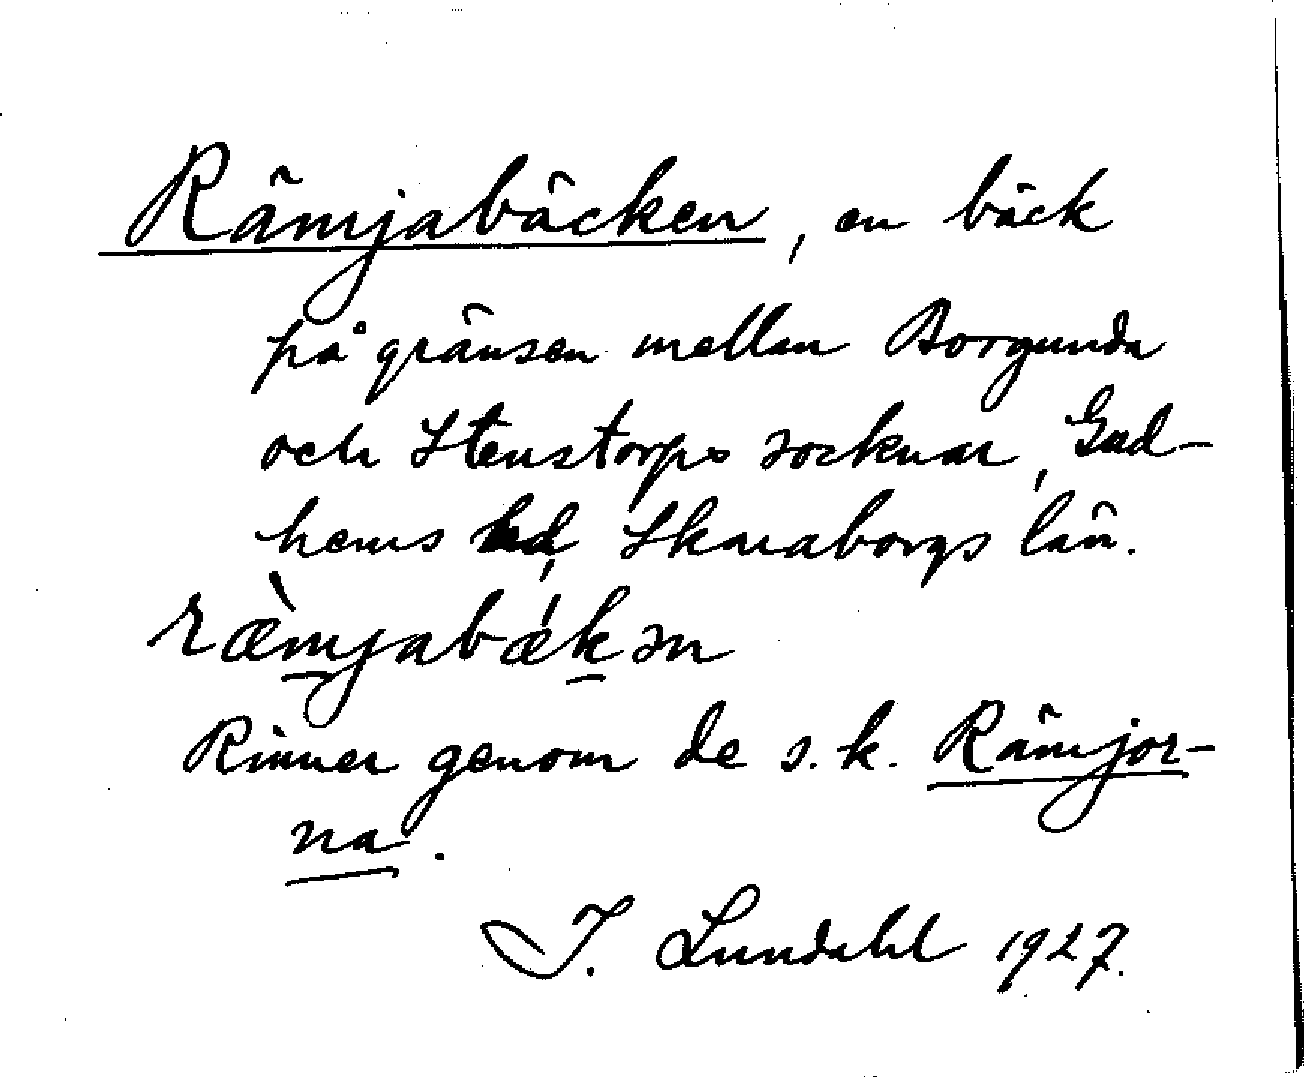 Rämjabäcken, en bäck
på gränsen mellan Borgunda
och Stenstorps socknar, Gud-
hems hd, Skaraborgs län.
ræ̀m̲jabǽk̲ən
Rinner genom de s.k. Rämjor-
na.
I. Lundahl 1927.